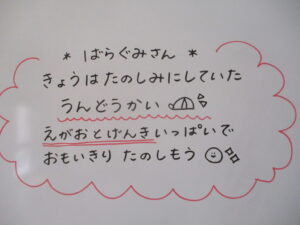 * ばらぐみさん *
きょうは たのしみにしていた
うんどうかい
えがおとげんきいっぱいで
おもいきり たのしもう